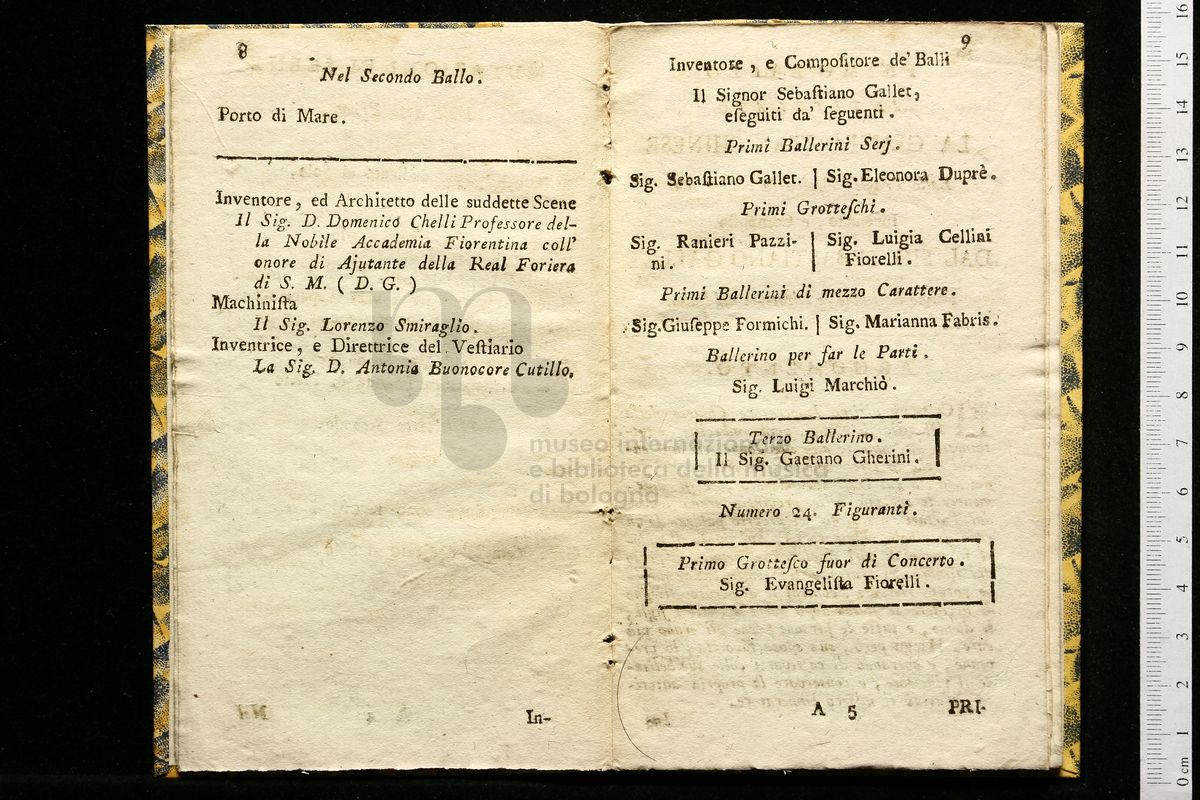 8
Nel Secondo Ballo.
Porto di Mare.
Inventore, ed Architetto delle suddette Scene
Il Sig. D. Domenico Chelli Professore del-
la Nobile Accademia Fiorentina coll'
onore di Ajutante della Real Foriera
di S. M. ( D. G. )
Machiniſta
Il Sig. Lorenzo Smiraglio.
Inventrice, e Direttrice del Veſtiario
La Sig. D. Antonia Buonocore Cutillo.
In-
9
Inventore, e Compoſitore de' Balli
Il Signor Sebaſtiano Gallet,
eſeguiti da' ſeguenti.
Primi Ballerini Serj.
Sig. Sebaſtiano Gallet. | Sig. Eleonora Duprè.
Primi Grotteſchi.
Sig. Ranieri Pazzi- | Sig. Luigia Cellini
ni. | Fiorelli.
Primi Ballerini di mezzo Carattere.
Sig. Giuſeppe Formichi. | Sig. Marianna Fabris.
Ballerino per far le Parti.
Sig. Luigi Marchiò.
Terzo Ballerino.
Il Sig. Gaetano Gherini.
Numero 24. Figuranti.
Primo Grotteſco fuor di Concerto.
Sig. Evangeliſta Fiorelli.
A 5
PRI-
museo internazionale
e biblioteca della musica
di bologna
0 cm 1 2 3 4 5 6 7 8 9 10 11 12 13 14 15 16